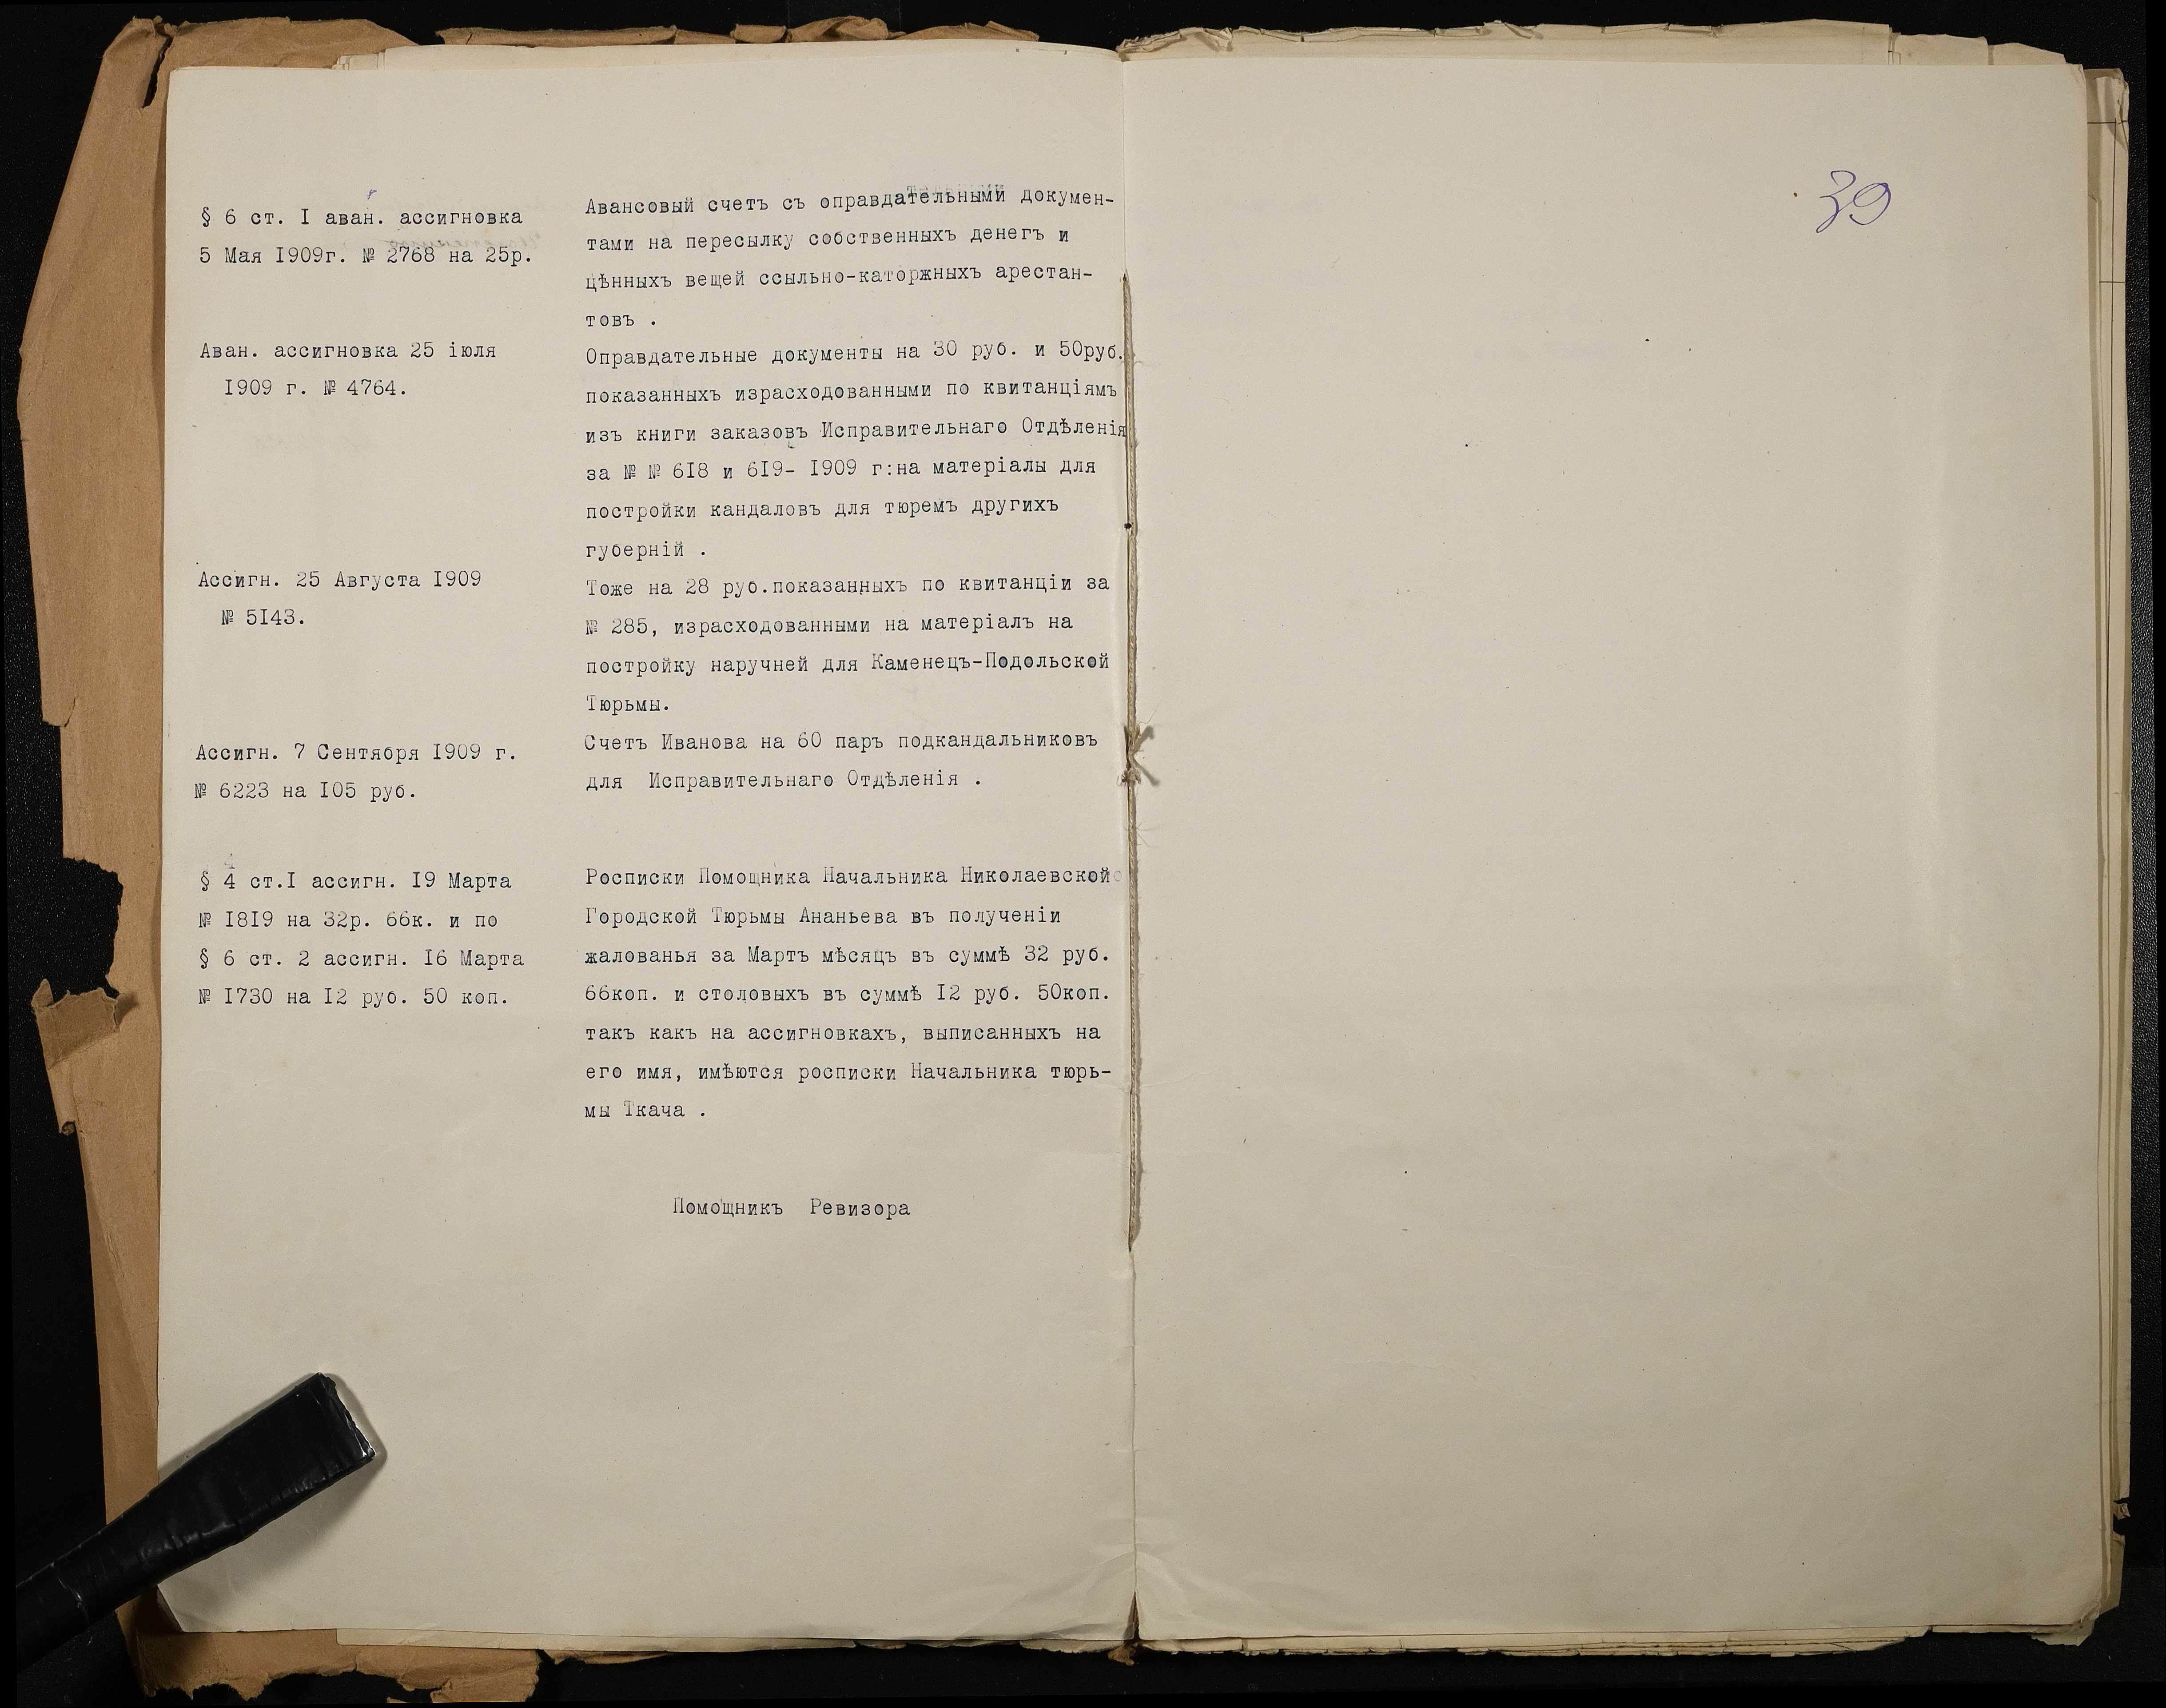 § 6 ст. I аван. ассигновка
5 Мая I909г. № 2768 на 25р.
Авансовый счетъ съ оправдательными докумен-
тами на пересылку собственныхъ денегъ и
цѣнныхъ вещей ссыльно-каторжныхъ арестан-
товъ .
Аван. ассигновка 25 іюля
I909 г. № 4764.
Оправдательные документы на 30 руб. и 50руб.
показанныхъ израсходованными по квитанціямъ
изъ книги заказовъ Исправительнаго Отдѣленія
за № № 6I8 и 6I9- I909 г:на матеріалы для
постройки кандаловъ для тюремъ другихъ
губерній .
Ассигн. 25 Августа I909
№ 5I43.
Тоже на 28 руб.показанныхъ по квитанціи за
№ 285, израсходованными на матеріалъ на
постройку наручней для Каменецъ-Подольской
Тюрьмы.
Ассигн. 7 Сентября I909 г.
№ 6223 на I05 руб.
Счетъ Иванова на 60 паръ подкандальниковъ
для Исправительнаго Отдѣленія .
§ 4 ст.I ассигн. I9 Марта
№ I8I9 на 32р. 66к. и по
§ 6 ст. 2 ассигн. I6 Марта
№ I730 на I2 руб. 50 коп.
Росписки Помощника Начальника Николаевской
Городской Тюрьмы Ананьева въ полученіи
жалованья за Мартъ мѣсяцъ въ суммѣ 32 руб.
66коп. и столовыхъ въ суммѣ I2 руб. 50коп.
такъ какъ на ассигновкахъ, выписанныхъ на
его имя, имѣются росписки Начальника тюрь-
мы Ткача .
Помощникъ Ревизора
39